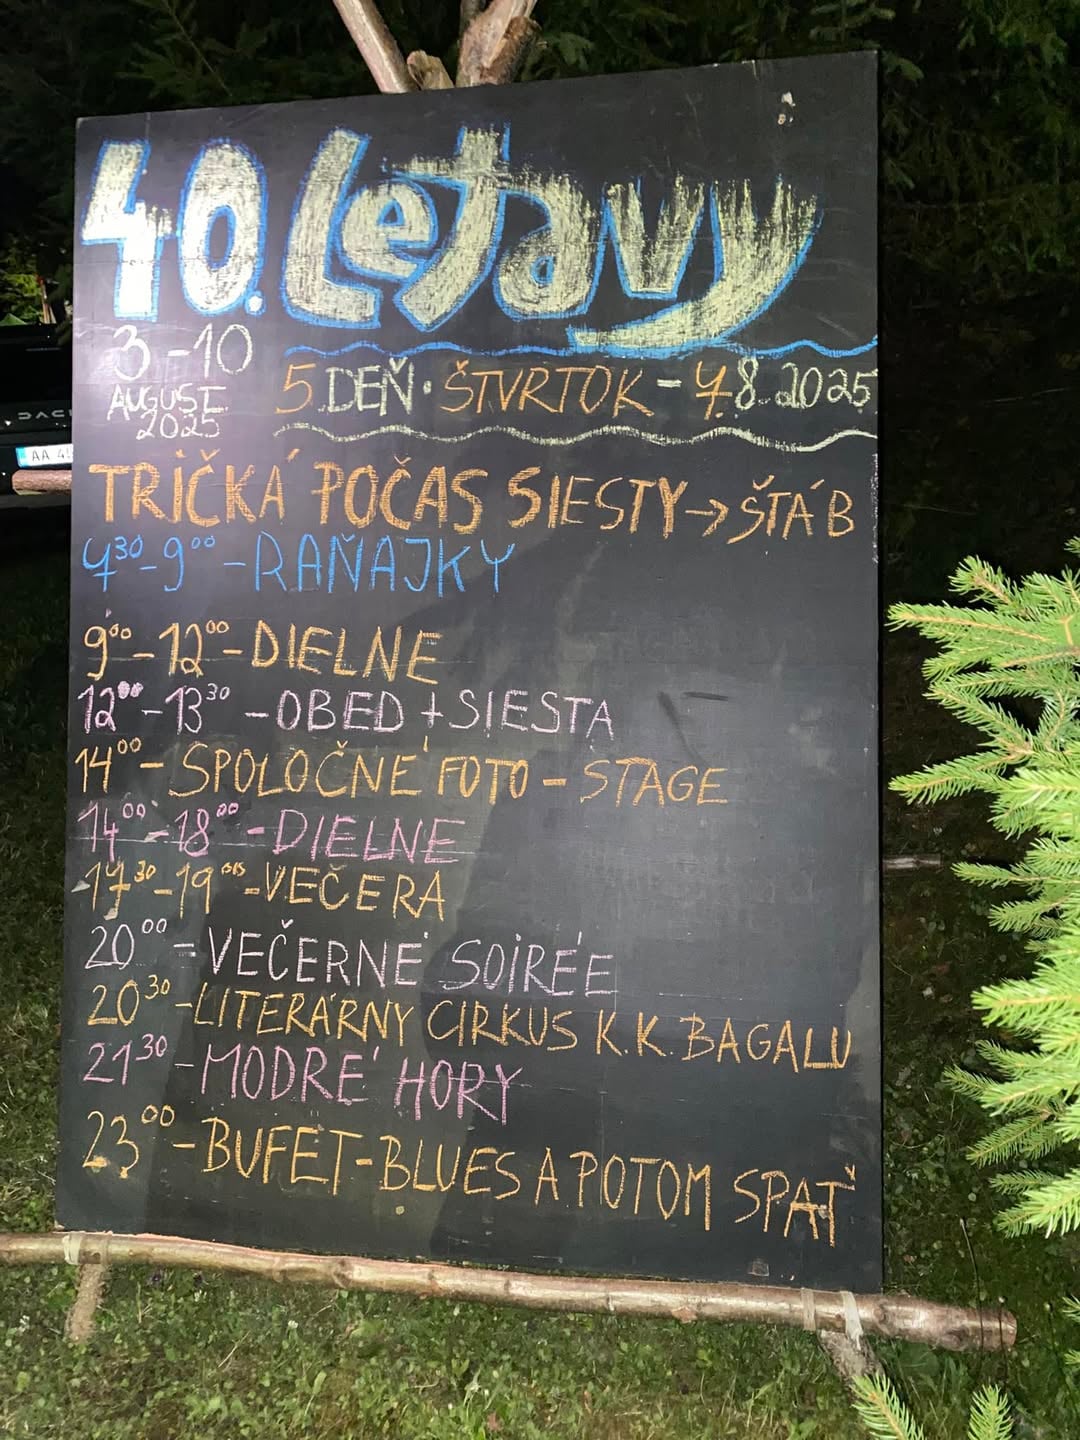 40. Letavy
3-10
AUGUST
2025
5. DEŇ · ŠTVRTOK - 7.8.2025
DACI
AA
TRIČKÁ POČAS SIESTY → ŠTÁB
7³⁰-9⁰⁰-RAŇAJKY
9⁰⁰-12⁰⁰-DIELNE
12⁰⁰-13³⁰-OBED+SIESTA
14⁰⁰-SPOLOČNÉ FOTO-STAGE
14⁰⁰-18⁰⁰-DIELNE
17³⁰-19-VEČERA
20⁰⁰-VEČERNÉ SOIRÉE
20³⁰-LITERÁRNY CIRKUS K.K. BAGALU
21³⁰-MODRÉ HORY
23⁰⁰-BUFET-BLUES A POTOM SPAŤ